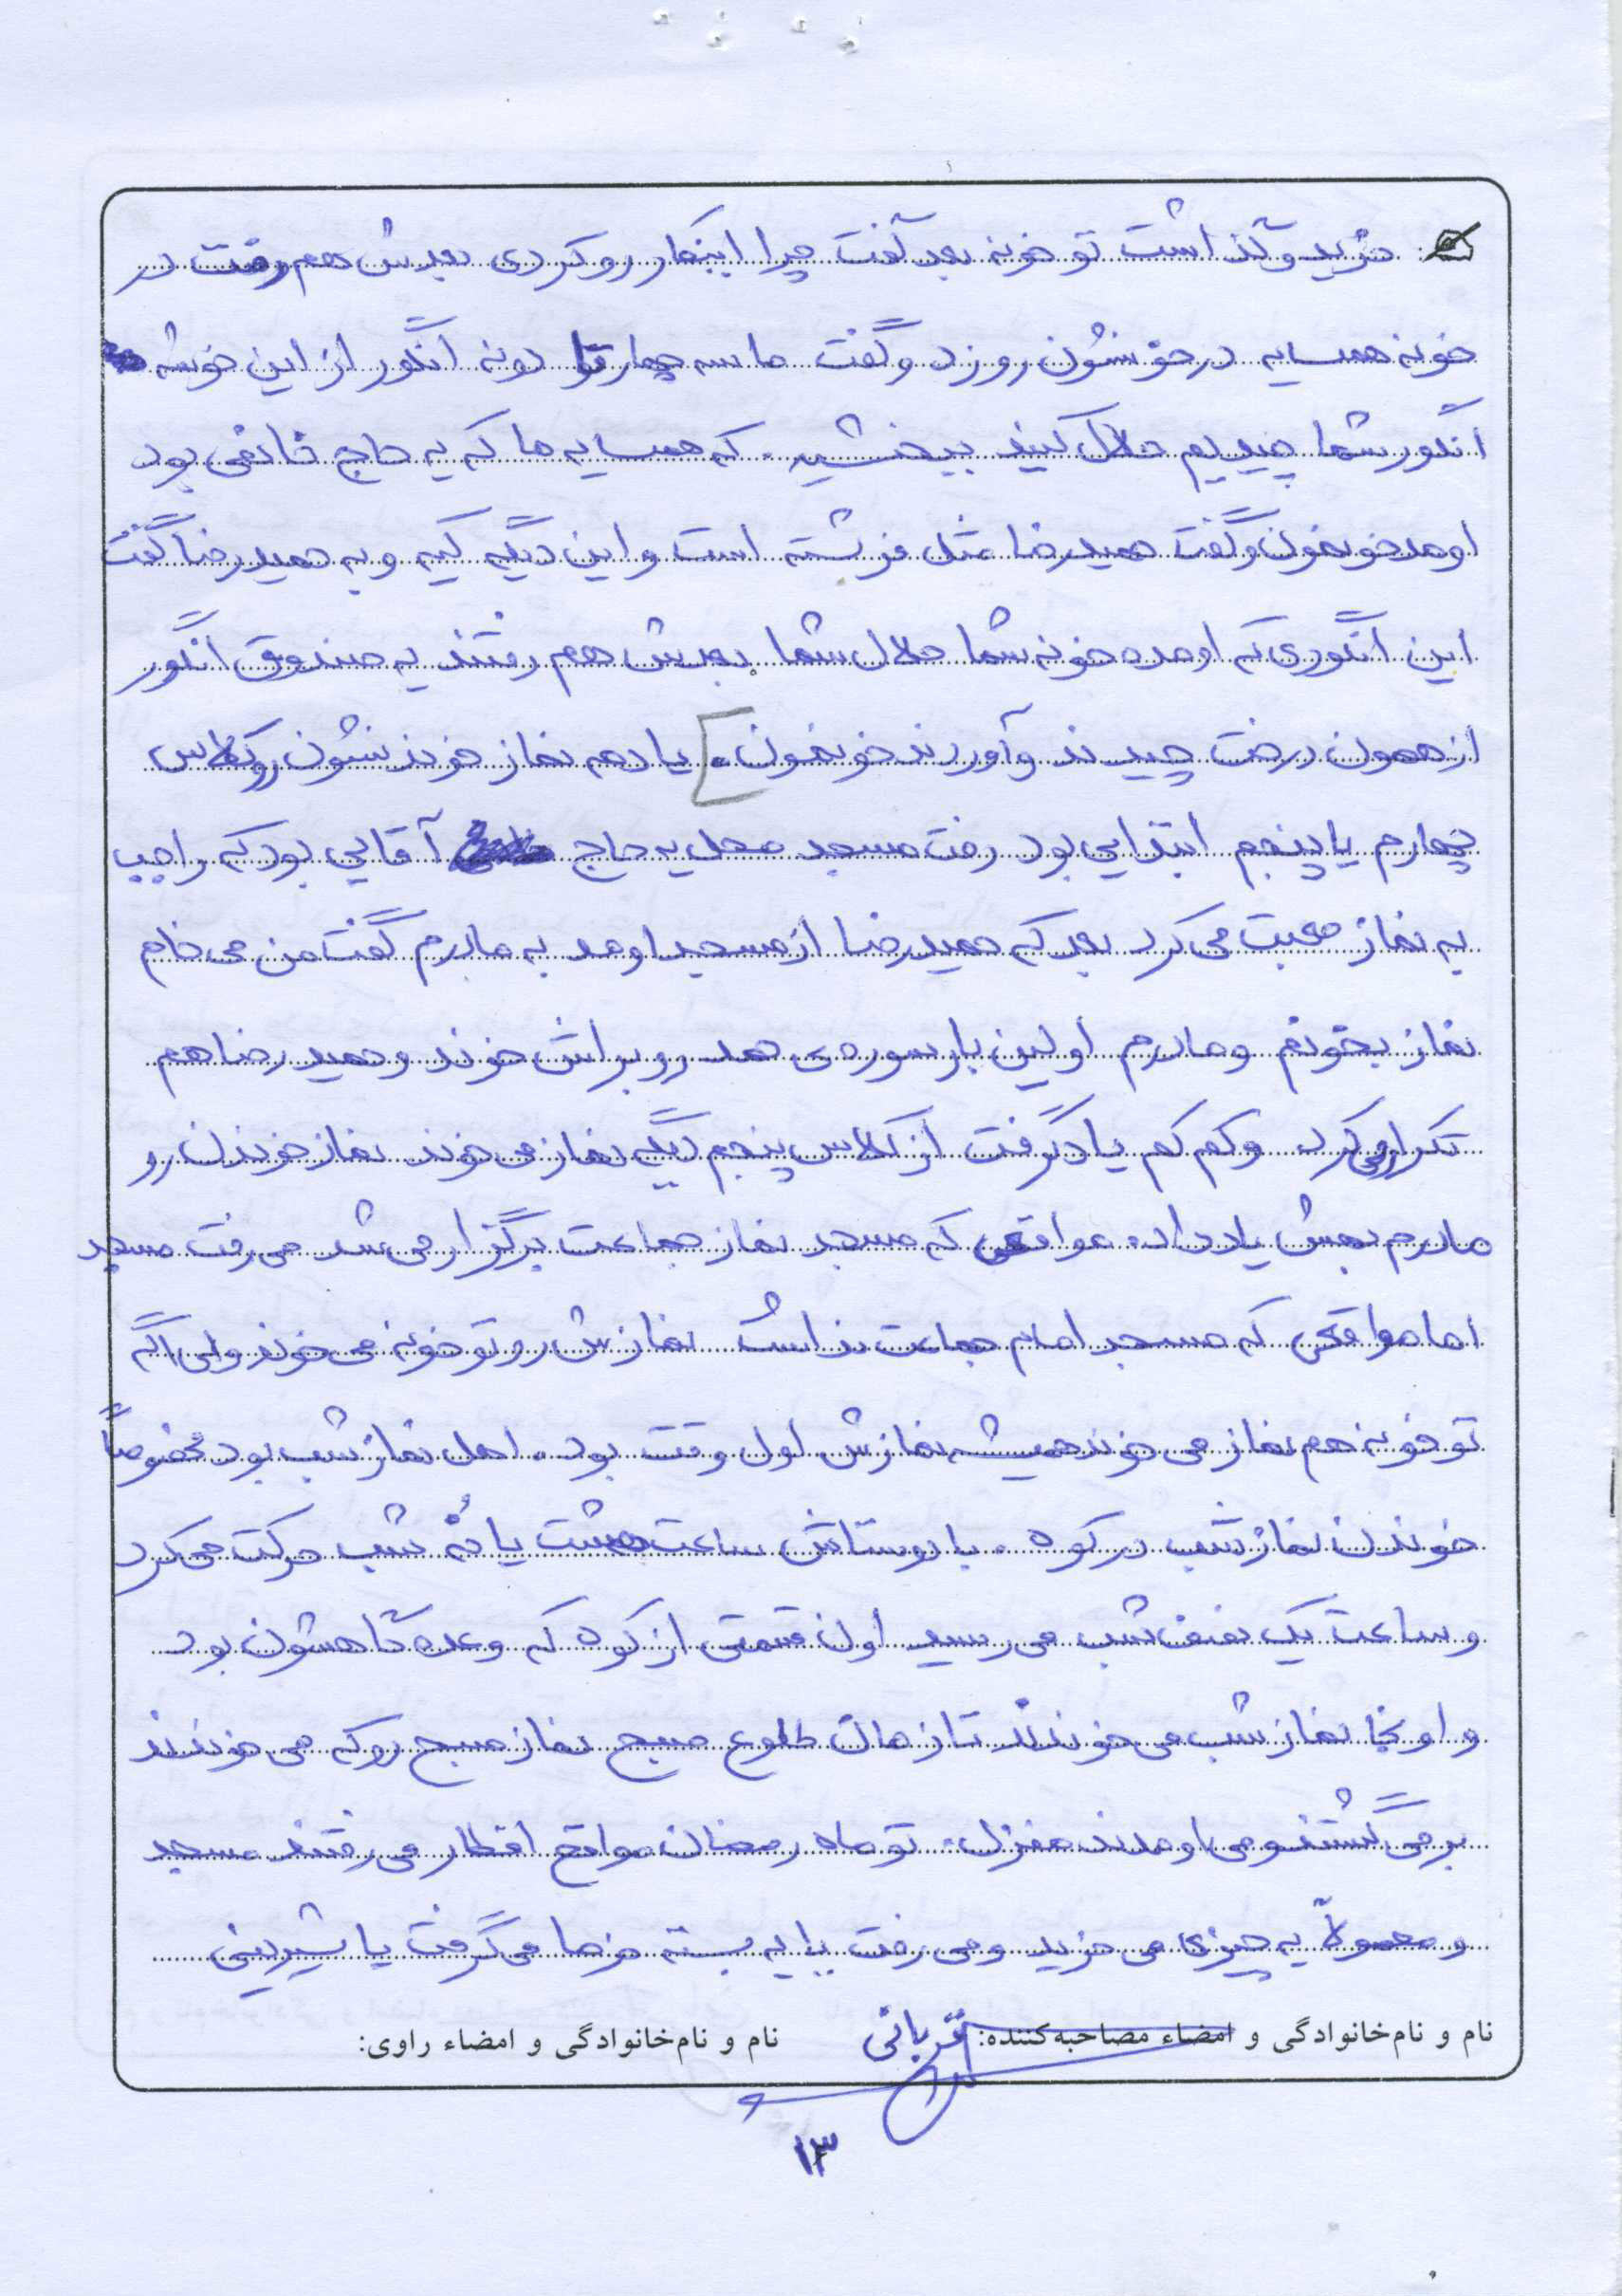 خرید و گذاشت تو خونه بعد گفت چرا اینکار رو کردی بعدش هم رفت در
خونه همسایه در خونشون رو زد و گفت ما سه چهار تا دونه انگور از این خوشه
انگور شما چیدیم حلال کنید ببخشید. که همسایه ما که یه حاج خانمی بود
اومد خونمون و گفت حمیدرضا مثل فرشته است و این دیگه کیه و به حمیدرضا گفت
این انگوری که اومده خونه شما حلال شما بعدش هم رفتند یه صندوق انگور
از همون درخت چیدند و آوردند خونمون. [یادمه نماز خوندنشون رو کلاس
چهارم یا پنجم ابتدایی بود رفت مسجد محل یه حاج آقایی بود که راجب
به نماز صحبت می کرد بعد که حمیدرضا از مسجد اومد به مادرم گفت من می خام
نماز بخونم و مادرم اولین بار سوره ی حمد رو براش خوند و حمیدرضا هم
تکرار می کرد و کم کم یاد گرفت از کلاس پنجم دیگه نماز می خوند نماز خوندن رو
مادرم بهش یاد داد. مواقعی که مسجد نماز جماعت برگزار می شد می رفت مسجد
اما مواقعی که مسجد امام جماعت نداشت نمازش رو تو خونه می خوند ولی اگه
تو خونه هم نماز می خوند همیشه نمازش اول وقت بود. اهل نماز شب بود مخصوصاً
خوندن نماز شب در کوه. با دوستاش ساعت هشت یا نُه شب حرکت می کرد
و ساعت یک نصف شب می رسید اون قسمتی از کوه که وعده گاهشون بود
و اونجا نماز شب می خوندند تا زمان طلوع صبح نماز صبح رو که می خوندند
برمی گشتند و می اومدند منزل. تو ماه رمضان مواقع افطار می رفتند مسجد
و معمولاً یه چیزی می خرید و می رفت یا یه بسته خرما می گرفت یا شیرینی
نام و نام‌خانوادگی و امضاء مصاحبه‌کننده: قربانی نام و نام‌خانوادگی و امضاء راوی:
۱۳